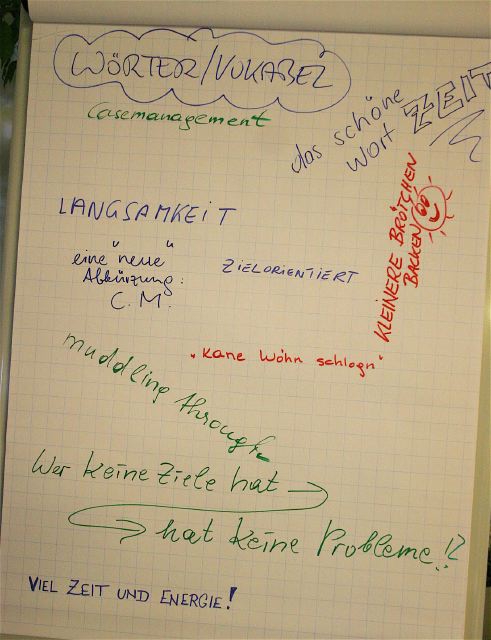 WÖRTER/VOKABEL
Casemanagement
das schöne
Wort ZEIT
LANGSAMKEIT
eine "neue"
Abkürzung:
C. M.
ZIELORIENTIERT
KLEINERE BRÖTCHEN
BACKEN
"Kane Wöhn schlogn"
muddling through
Wer keine Ziele hat →
→ hat keine Probleme!?
VIEL ZEIT UND ENERGIE!